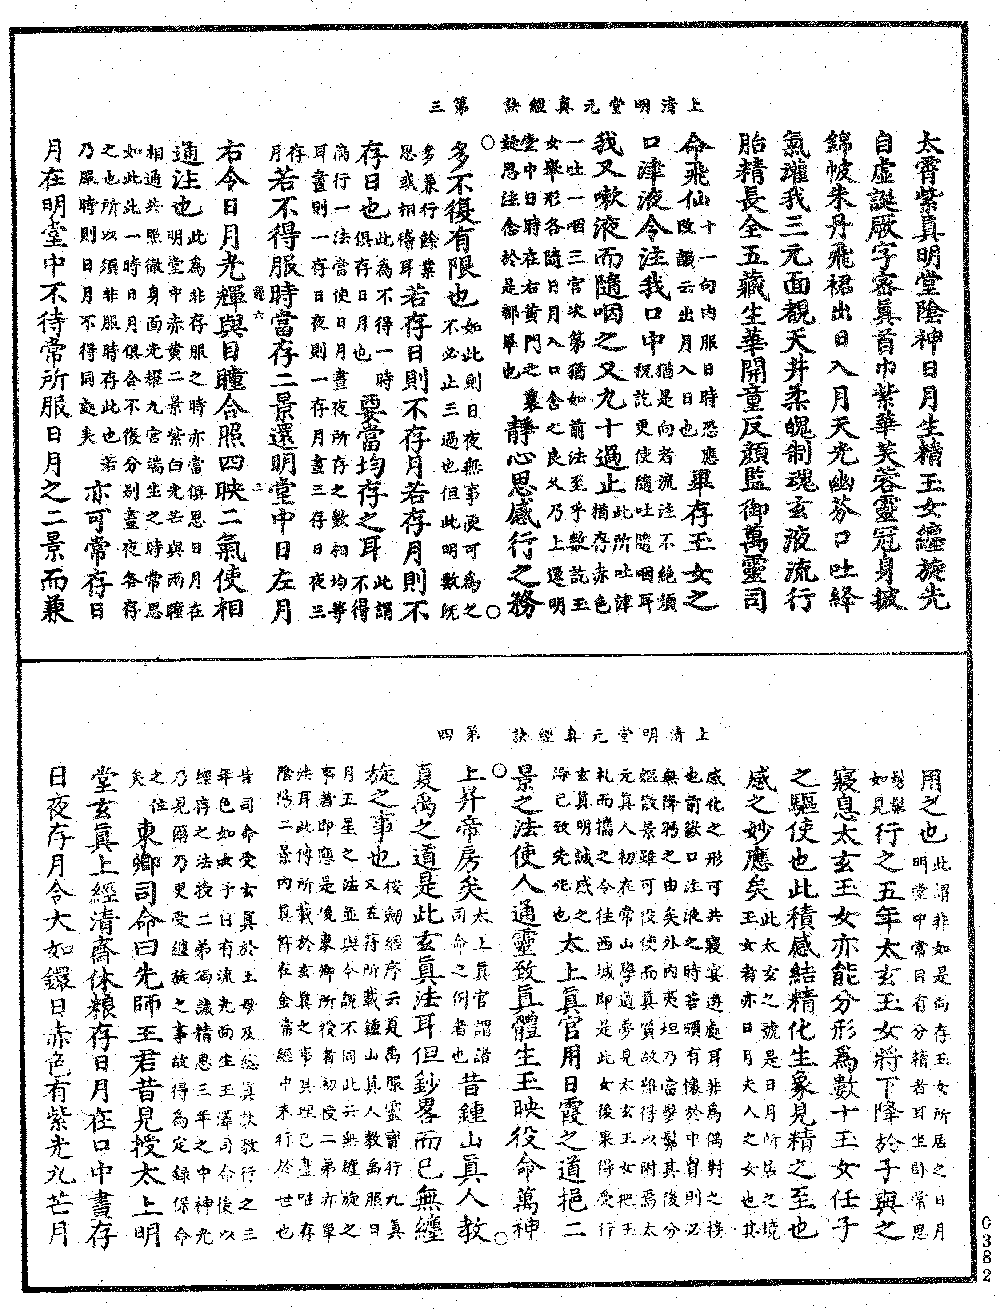 上清明堂元真經訣　第三
太霄紫真明堂陰神日月生精玉女纏旋先
自虛誕厥字密真首巾紫華芙蓉靈冠身披
錦帔朱丹飛裙出日入月天光幽芬口吐絳
氣灌我三元面觀天井柔魄制魂玄液流行
胎精長全五藏生華開童反顏監御萬靈司
命飛仙十一句內服日時恐應改讖云出月入日也畢存玉女之
口津液令注我口中猶是向者流注不絕須祝訖更使隨吐隨咽耳
我又嗽液而隨咽之又九十過止此所吐津猶存赤色
一吐一咽三官次第猶如前法至乎數訖玉
女舉形各隨日月入口含之良久乃上還明
堂中日時在右黃門之裏
疑思注念於是都畢也靜心思感行之務
多不復有限也如此則日夜無事便可為之不必止三過也但此明數既
多兼行餘業思或相待耳若存日則不存月若存月則不
存日也此為不得一時俱存日月也要當均存之耳此謂不得
偏行一法當使日月晝夜所存之數相均等
耳晝則一存日夜則一存月晝三存日夜三
存月若不得服時當存二景還明堂中日左月
右令日月光輝與目瞳合照四映二氣使相
通注也此為非存服之時亦當俱思日月在明堂中赤黃二景紫白光芒與兩瞳
相通共照徹身面光耀九宮端坐之時常思
如此此一時日月俱含不復分別晝夜各存
之也所以須非服時存此也若
乃服時則日月不得同處矣亦可常存日
月在明堂中不待常所服日月之二景而兼
上清明堂元真經訣　第四
用之也此謂非如是向存玉女所居之日月明堂中常自有分精者耳坐卧常思
髣髴如見行之五年太玄玉女將下降於子與之
寢息太玄玉女亦能分形為數十玉女任子
之驅使也此積感結精化生象見精之至也
感之妙應矣此太玄之號是日月所居之境玉女者亦日月夫人之女也其
感化之形可共寢宴遊處耳非為偶對之接
也前歘口注液之時若頭有懷於中自則必
無降為之由矣外內夷坦乃當髣髴其後分
影散景雖可役使而真質故難得以附焉太
元真人初在常山學道夢見太玄玉女把玉
札而攜之令往西城即是此女後果得受行
玄真明誠感之
海已致先兆也太上真官用日霞之道挹二
景之法使人通靈致真體生玉映役命萬神
上昇帝房矣太上真官謂諸司命之例者也昔鍾山真人教
夏禹之道是此玄真法耳但鈔畧而已無纏
旋之事也按劒經序云夏禹服靈寶行九真又五符所載鍾山真人教禹服日
月玉星之法並與今說不同此云無纏旋之
事者即應是後東卿所授者初授二弟亦單
法耳此傳所載於玄真之事其理已盡唯存
陰陽二景內真符在金常經中未行於世也
昔司命受玄真於王母及總真並教行之三
年色如女子日有流光面生玉澤司命後以
經存之法授二弟獨讓精思三年之中神光
乃見爾乃更受纏旋之事故得為定錄保命
之位矣東卿司命曰先師王君昔見授太上明
堂玄真上經清齋休糧存日月在口中晝存
日夜存月令大如鐶日赤色有紫光九芒月
0382